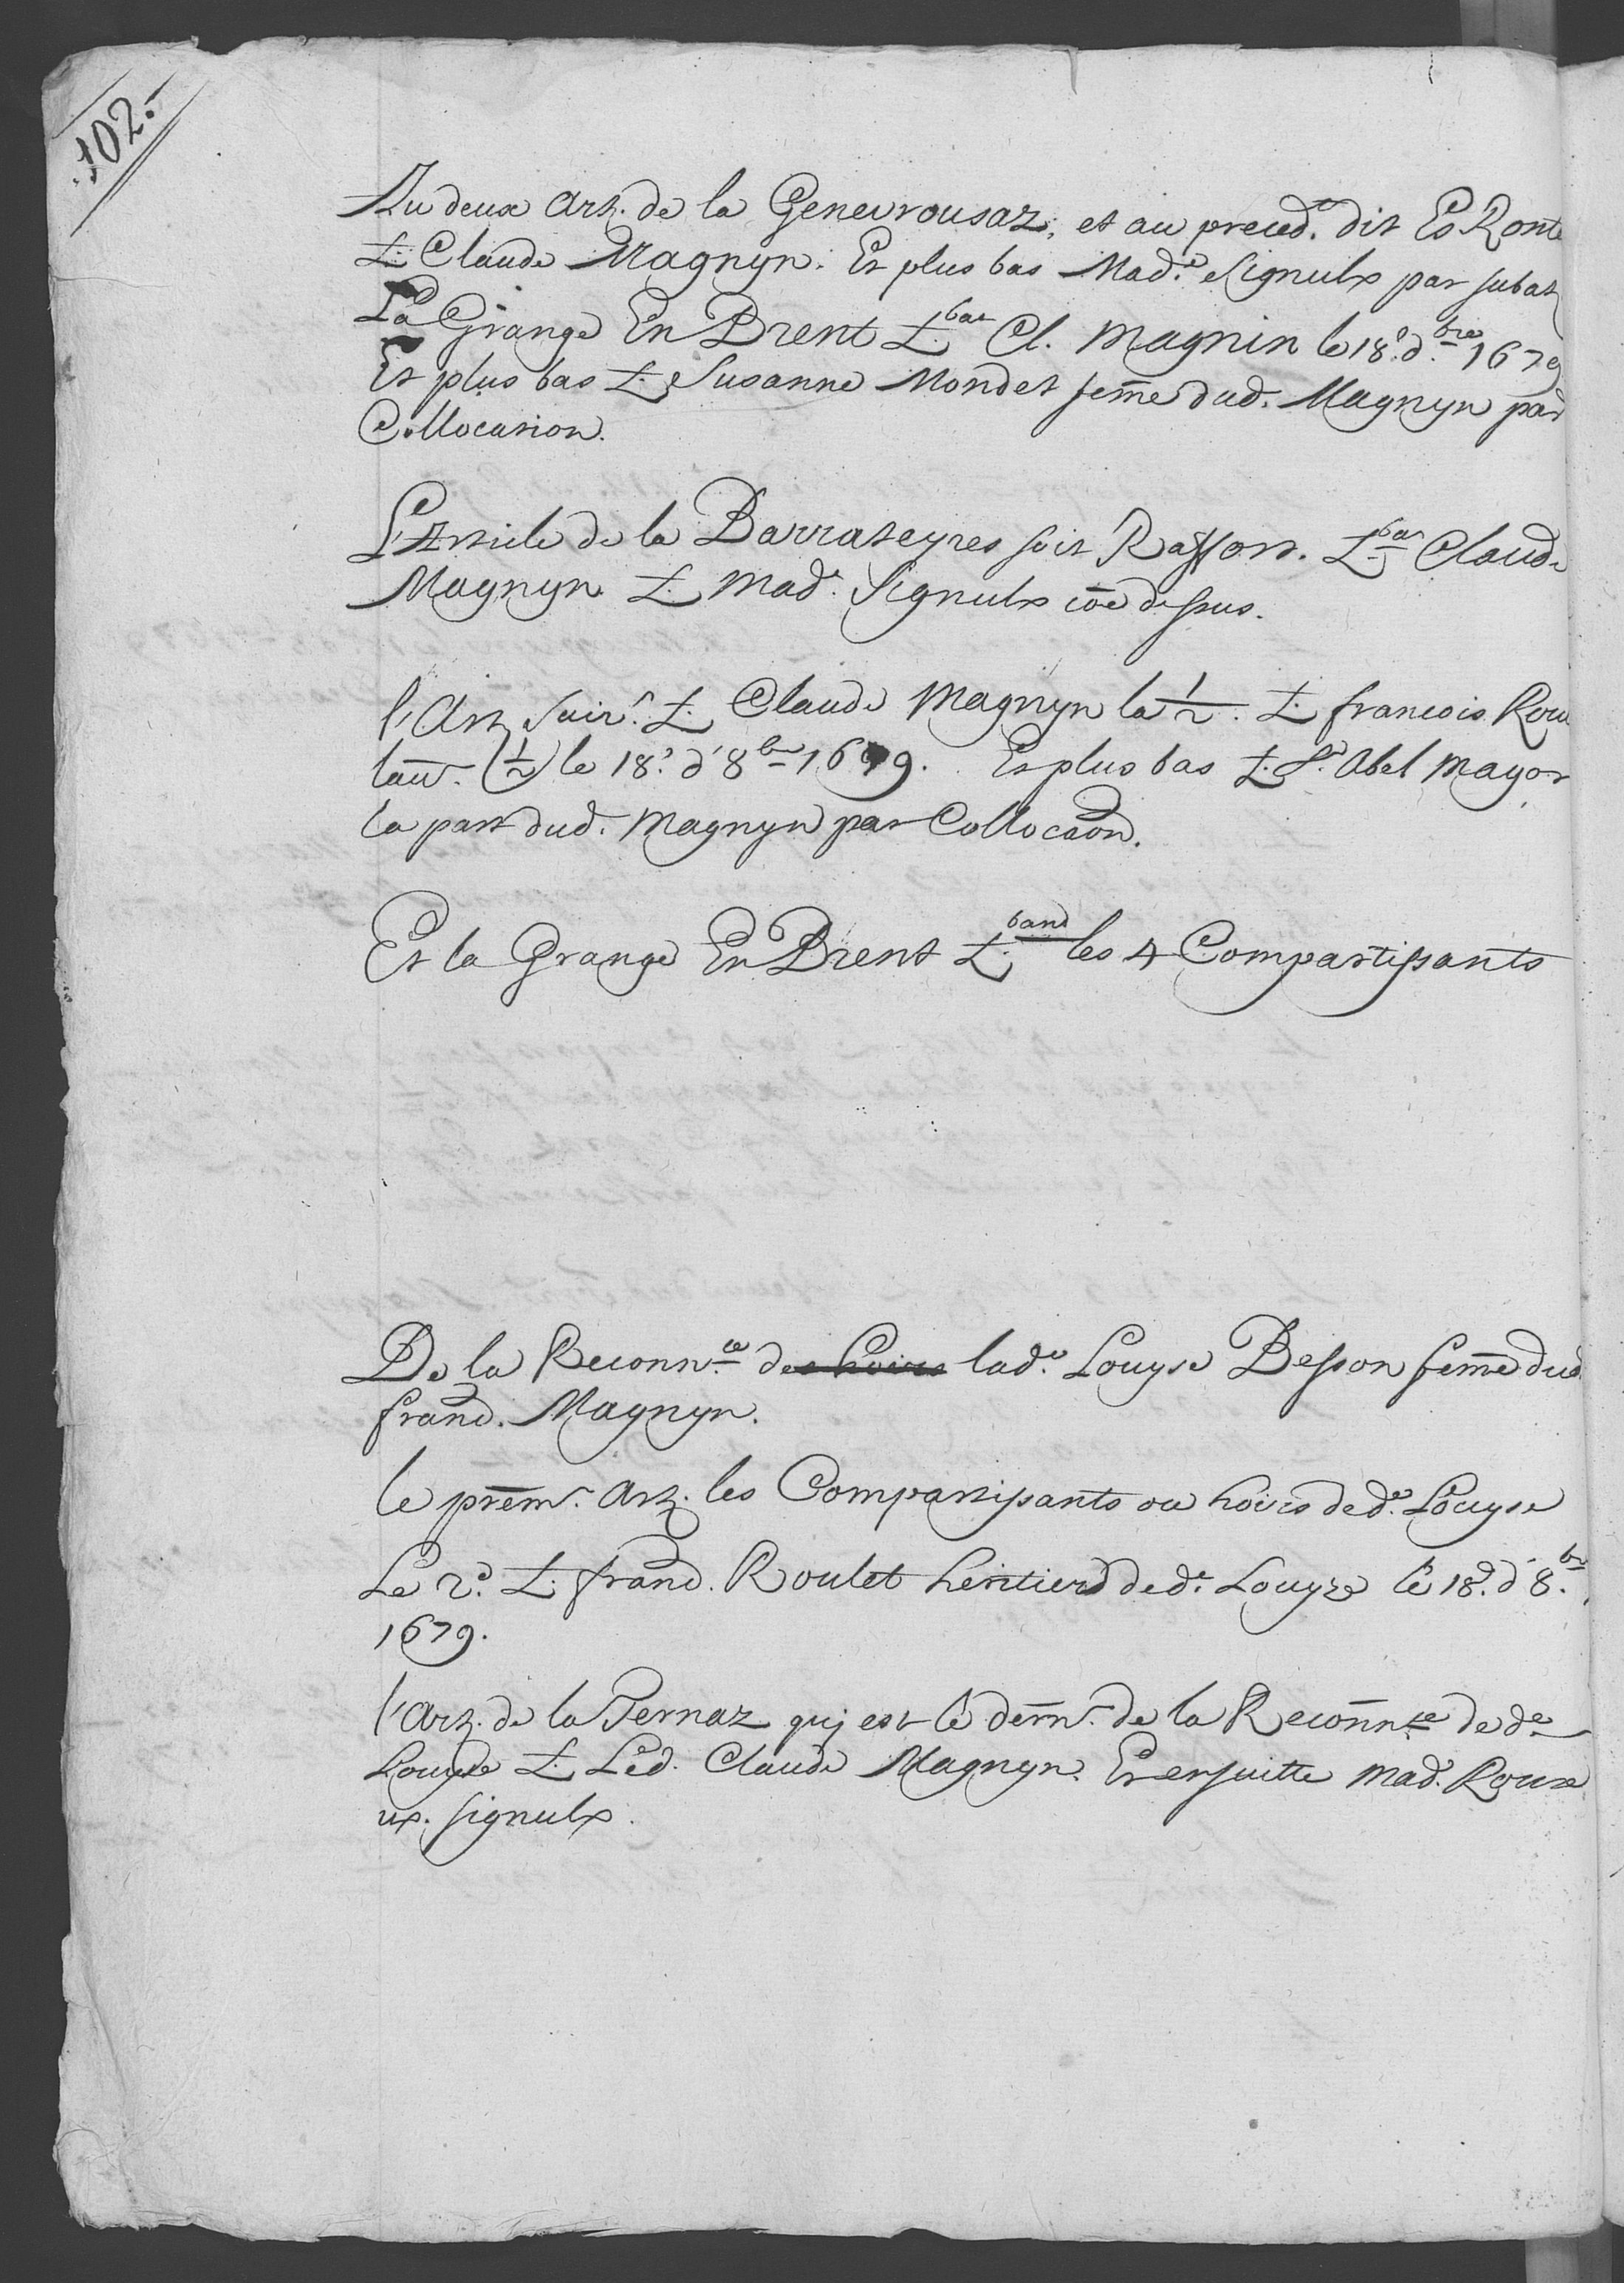 102.
Au deux art. de la Genevrousaz, et au preced.t dit Es Ronte
t. Claude Magnyn. Et plus bas Mad.e Signulx par subat
La Grange En Brent t.bar Cl. Magnin le 18.e d.bre 1679
Et plus bas t. Susanne Mondet fem̄e dud. Magnyn par
Collocation.
L'Article de la Barrateyres soit Raffort. t.bar Claude
Magnyn t. Mad.e Signulx cōe dessus.
l'Art. suiv.t t. Claude Magnyn la 1/2. t. francois Rou
laut. (1/2) le 18.e d'8bre 1679. Et plus bas t. S.r Abel Mayor
la part dud. Magnyn par Collocaōn.
Et la Grange En Brent t.band les 4 Compartissants
De la Reconn.ce des hoirs lad.e Louyse Besson fem̄e dud.
franc. Magnyn.
le prēm.r art. les Compartissants ou hoirs de d.e Louyse
Le 2.e t. franc. Roulet heritiers de d.e Louyse le 18.e d'8.bre
1679.
l'Art. de la Pernaz quj est le dern̄.r de la Reconn̄.ce de d.e
Louyse t. Led. Claude Magnyn. Et ensuitte Mad.e Roux
ux. Signulx.